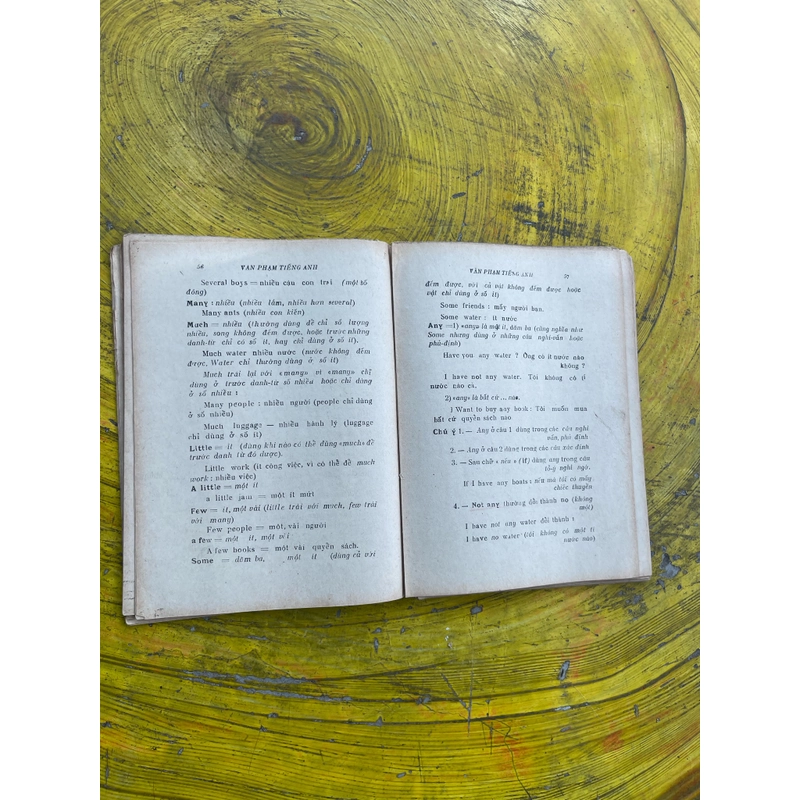 56 VĂN PHẠM TIẾNG ANH
Several boys = nhiều cậu con trai (một số
đông)
Many : nhiều (nhiều lắm, nhiều hơn several)
Many ants (nhiều con kiến)
Much = nhiều (thường dùng để chỉ số lượng
nhiều, song không đếm được, hoặc trước những
danh-từ chỉ có số ít, hay chỉ dùng ở số ít).
Much water nhiều nước (nước không đếm
được, Water chỉ thường dùng ở số ít)
Much trái lại với «many» vì «many» chỉ
dùng ở trước danh-từ số nhiều hoặc chỉ dùng
ở số nhiều :
Many people : nhiều người (people chỉ dùng
ở số nhiều)
Much luggage — nhiều hành lý (luggage
chỉ dùng ở số ít)
Little = ít (dùng khi nào có thể dùng «much» để
trước danh từ đó được).
Little work (ít công việc, vì có thể để much
work : nhiều việc)
A little = một ít
a little jam = một ít mứt
Few = ít, một vài (little trái với much, few trái
với many)
Few people = một, vài người
a few = một ít, một vài
A few books = một vài quyển sách.
Some = dăm ba, một ít (dùng cả với
VĂN PHẠM TIẾNG ANH 57
đếm được, với cả vật không đếm được hoặc
vật chỉ dùng ở số ít)
Some friends : mấy người bạn.
Some water : ít nước
Any = 1) «any» là một ít, dăm ba (cùng nghĩa như
Some nhưng dùng ở những câu nghi-vấn hoặc
phủ-định)
Have you any water ? Ông có ít nước nào
không ?
I have not any water. Tôi không có tí
nước nào cả.
2) «any» là bất cứ ... nào.
I Want to buy any book : Tôi muốn mua
bất cứ quyển sách nào
Chú ý 1. — Any ở câu 1 dùng trong các câu nghi
vấn, phủ định
2. — Any ở câu 2 dùng trong các câu xác định
3. — Sau chữ « nếu » (if) dùng any trong câu
tỏ ý nghi ngờ.
If I have any boats : nếu mà tôi có mấy
chiếc thuyền
4. — Not any thường đổi thành no (không
một)
I have not any water đổi thành :
I have no water (tôi không có một tí
nước nào)